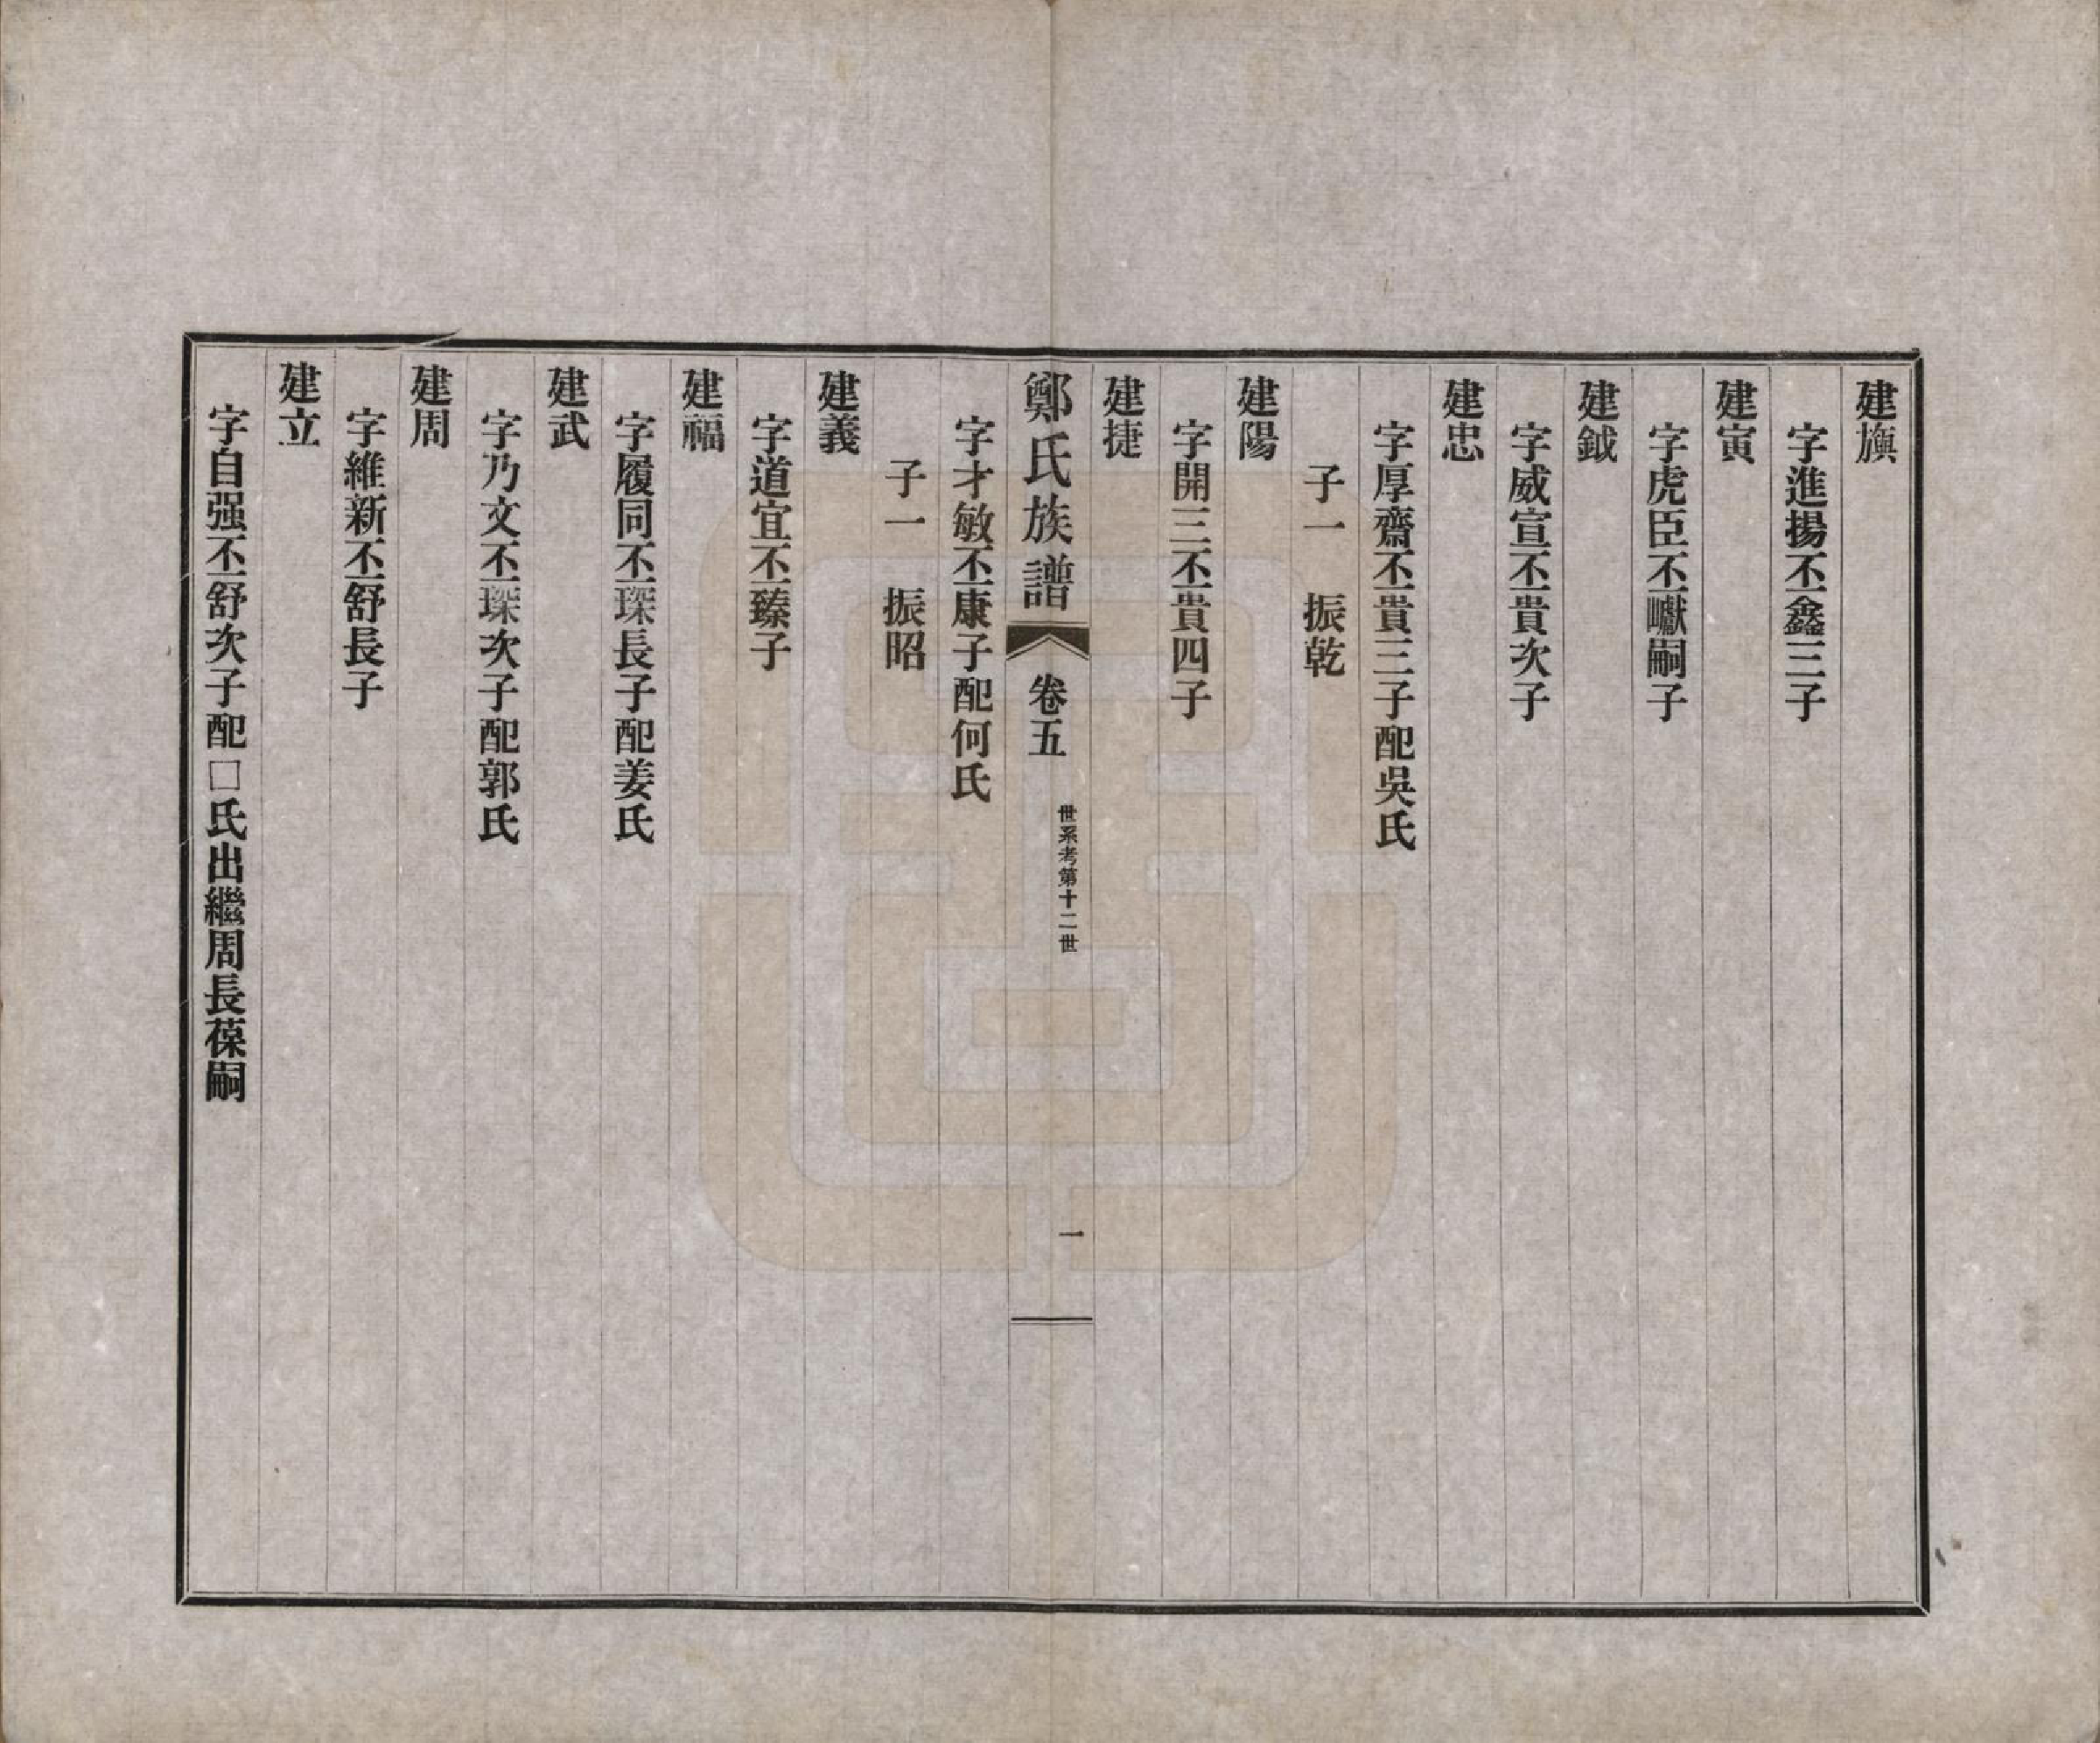 建旟
字進揚丕鑫三子
建寅
字虎臣丕巘嗣子
建鉞
字威宣丕貴次子
建忠
字厚齋丕貴三子配吳氏
子一　振乾
建陽
字開三丕貴四子
建捷
鄭氏族譜　卷五　世系考第十二世　一
字才敏丕康子配何氏
子一　振昭
建義
字道宜丕臻子
建福
字履同丕琛長子配姜氏
建武
字乃文丕琛次子配郭氏
建周
字維新丕舒長子
建立
字自强丕舒次子配□氏出繼周長葆嗣